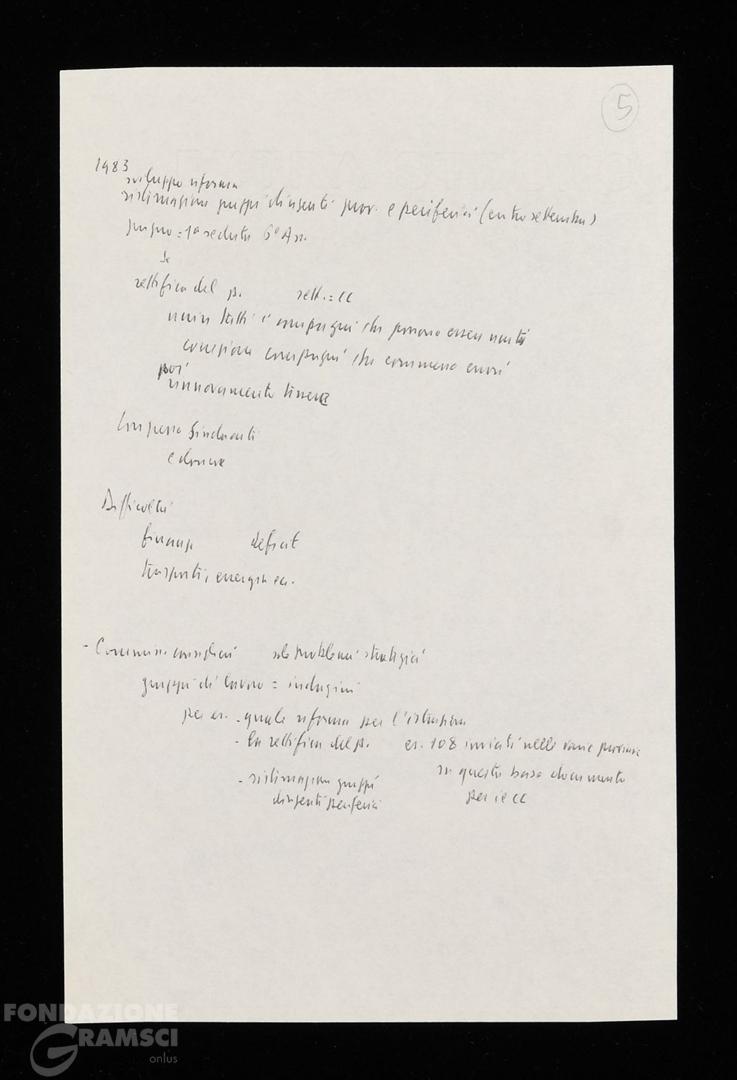 5
1983
sviluppo riforma
sistemazione gruppi dirigenti prov. e periferici (entro settembre)
giugno = 1ª seduta 6ª An.
rettifica del p. sett. = CC
unire tutti i compagni che possono essere uniti
correzione compagni che commesso errori
poi
rinnovamento tessere
Congresso Sindacati
e donne
Difficoltà
finanze deficit
trasporti, energia ec.
- Commiss. consiglieri problemi strategici
gruppi di lavoro = indagini
per es. - quale riforma per l'istruzione
- la rettifica del p. es. 108 inviati nelle varie province
su questa base documento
- sistemazione gruppi per il CC
dirigenti periferici
FONDAZIONE
GRAMSCI
onlus